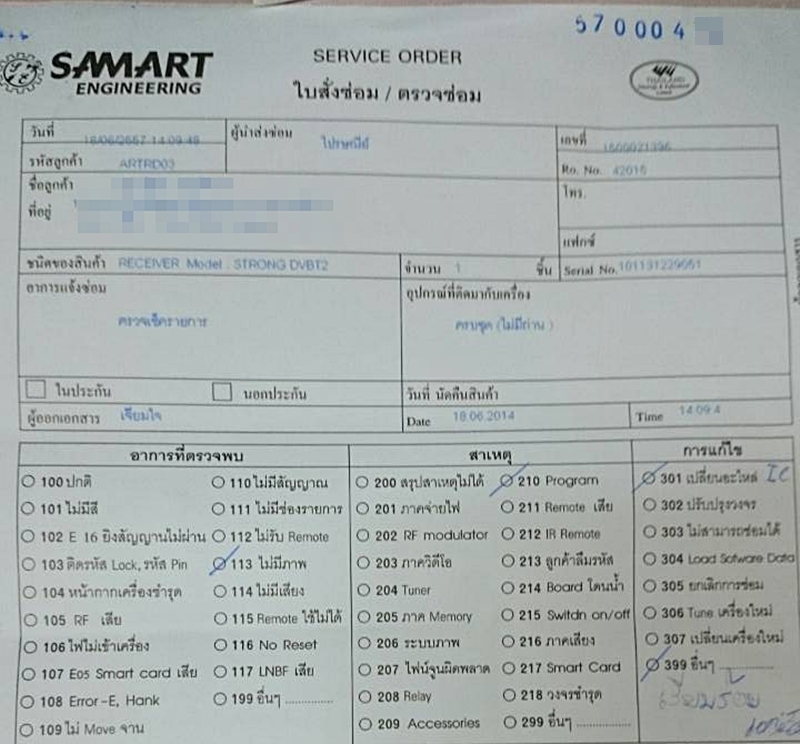 570004
SAMART
ENGINEERING
SERVICE ORDER
ใบสั่งซ่อม / ตรวจซ่อม
THAILAND
วันที่ 18/06/2557 14:09:48 ผู้นำส่งซ่อม ไปรษณีย์ เลขที่
รหัสลูกค้า ARTRD03 Ro. No. 42016
ชื่อลูกค้า โทร.
ที่อยู่
แฟกซ์
ชนิดของสินค้า RECEIVER Model : STRONG DVBT2 จำนวน 1 ชิ้น Serial No. 101131229051
อาการแจ้งซ่อม อุปกรณ์ที่ติดมากับเครื่อง
ตรวจเช็ครายการ ครบชุด (ไม่มีถ่าน)
ในประกัน นอกประกัน วันที่ นัดคืนสินค้า
ผู้ออกเอกสาร เจียมใจ Date 18.06.2014 Time 14:09:4
อาการที่ตรวจพบ สาเหตุ การแก้ไข
100 ปกติ 110 ไม่มีสัญญาณ 200 สรุปสาเหตุไม่ได้ 210 Program 301 เปลี่ยนอะไหล่ IC
101 ไม่มีสี 111 ไม่มีช่องรายการ 201 ภาคจ่ายไฟ 211 Remote เสีย 302 ปรับปรุงวงจร
102 E 16 ยิงสัญญาณไม่ผ่าน 112 ไม่รับ Remote 202 RF modulator 212 IR Remote 303 ไม่สามารถซ่อมได้
103 ติดรหัส Lock, รหัส Pin 113 ไม่มีภาพ 203 ภาควิดีโอ 213 ลูกค้าลืมรหัส 304 Load Sotware Data
104 หน้ากากเครื่องชำรุด 114 ไม่มีเสียง 204 Tuner 214 Board โดนน้ำ 305 ยกเลิกการซ่อม
105 RF เสีย 115 Remote ใช้ไม่ได้ 205 ภาค Memory 215 Switdn on/off 306 Tune เครื่องใหม่
106 ไฟไม่เข้าเครื่อง 116 No Reset 206 ระบบภาพ 216 ภาคเสียง 307 เปลี่ยนเครื่องใหม่
107 E05 Smart card เสีย 117 LNBF เสีย 207 ไฟน์จูนผิดพลาด 217 Smart Card 399 อื่นๆ
108 Error-E, Hank 199 อื่นๆ .............. 208 Relay 218 วงจรชำรุด เรียบร้อย
109 ไม่ Move จาน 209 Accessories 299 อื่นๆ ................